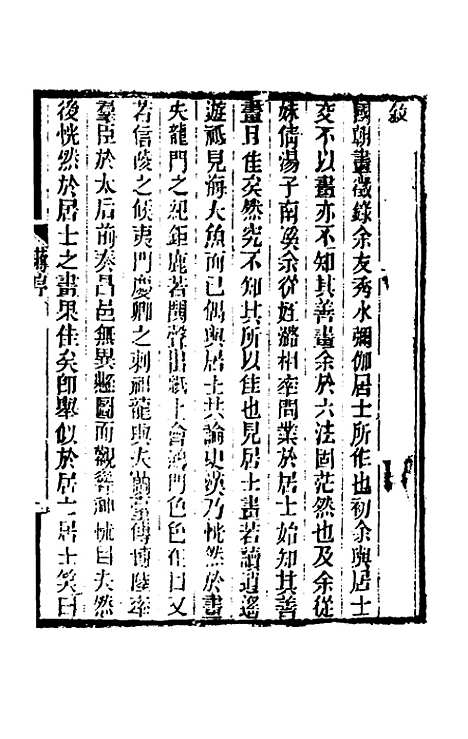 敘
國朝畫徵錄余友秀水彌伽居士所作也初余與居士
交不以畫亦不知其善畫余於六法固茫然也及余從
妹倩湯子南溪余從姪潞相率問業於居士始知其善
畫且佳矣然究不知其所以佳也見居士畫若讀逍遙
遊祗見海大魚而已偶與居士共論史漢乃恍然於畫
夫龍門之紀鉅鹿若聞聲出紙上會鴻門色色在目又
若信陵之候夷門慶卿之刺祖龍與夫蘭臺傳博陸率
羣臣於太后前奏昌邑無異懸圖而觀響神怵目夫然
後恍然於居士之畫果佳矣即舉似於居士居士笑曰